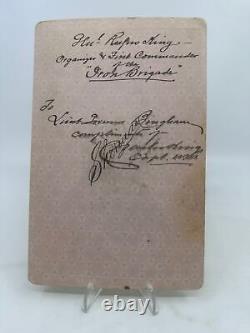 Genl. Rufus King —
Organizer & First Commander
of the
"Iron Brigade"
To
Lieut. Bingham
compliments of
Capt. USA
ebay